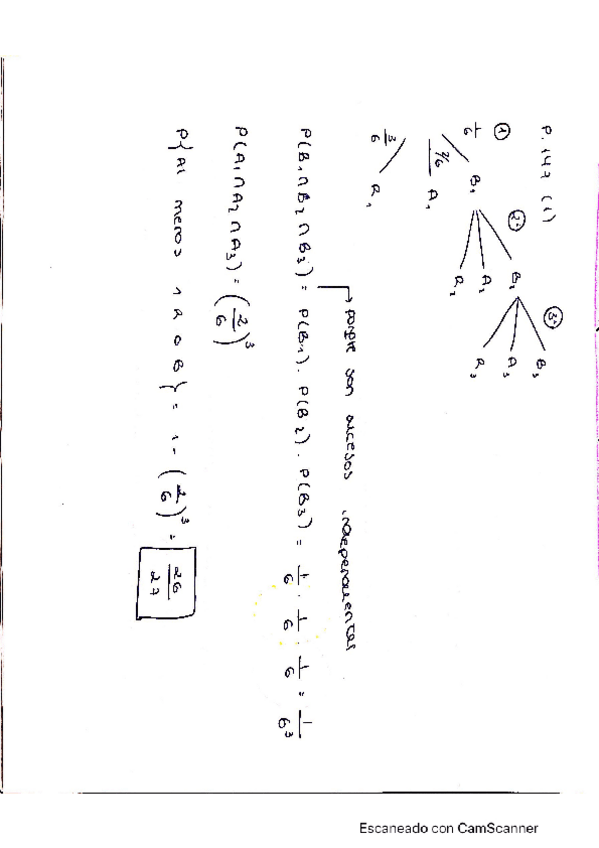 P. 147 (1)
① 2º 3º
1/6 B₁ B₁ B₃
2/6 A₁ A₂ A₃
3/6 R₁ R₂ R₃
→ porque son sucesos independientes
P(B₁∩B₂∩B₃) = P(B₁). P(B₂). P(B₃) = 1/6 . 1/6 . 1/6 = 1/6³
P(A₁∩A₂∩A₃) = (2/6)³
P{Al menos 1 R o B} = 1 - (2/6)³ = 26/27
Escaneado con CamScanner